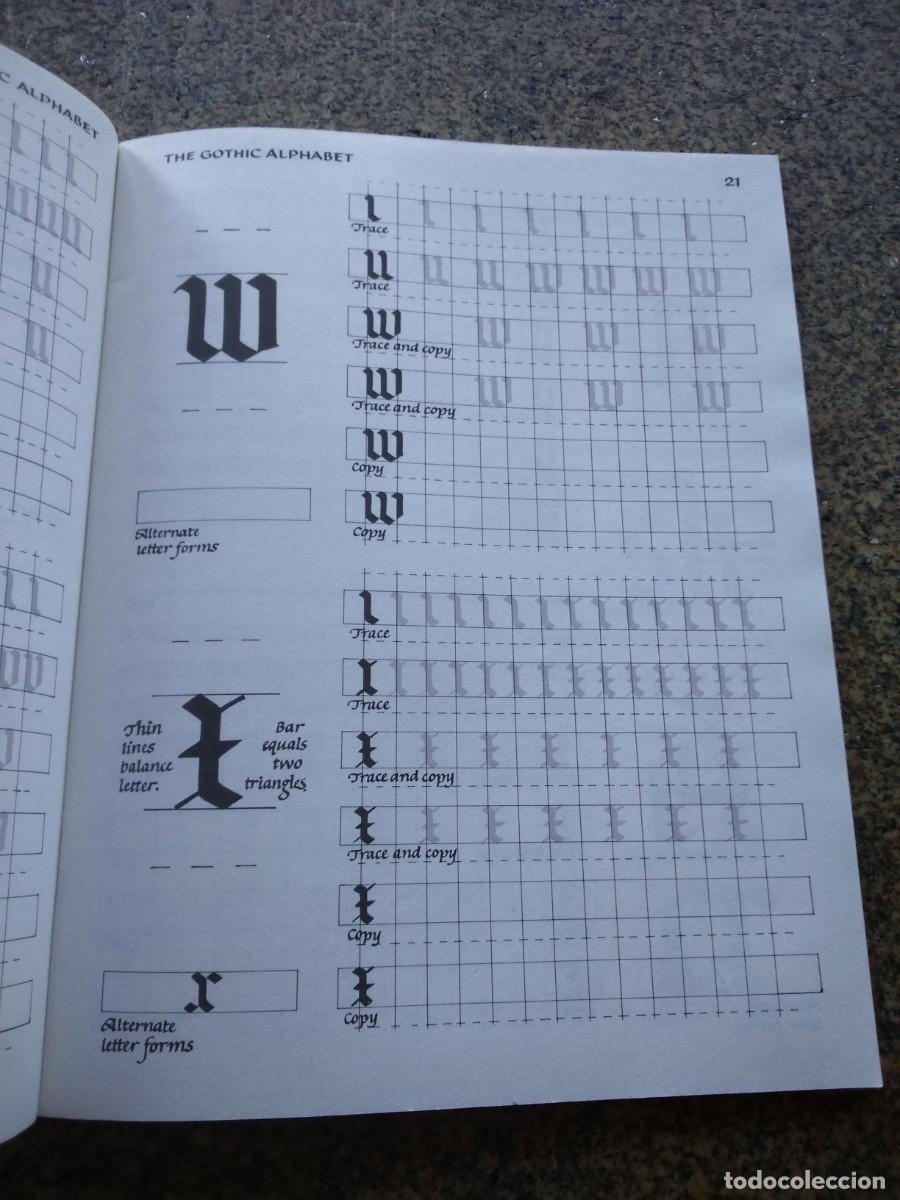 C ALPHABET
THE GOTHIC ALPHABET
21
w
Alternate
letter forms
Trace
Trace
w
Trace and copy
w
Trace and copy
w
Copy
w
Copy
Thin
lines
balance
letter.
x
Bar
equals
two
triangles
x
Alternate
letter forms
Trace
Trace
x
Trace and copy
x
Trace and copy
x
Copy
x
Copy
todocoleccion